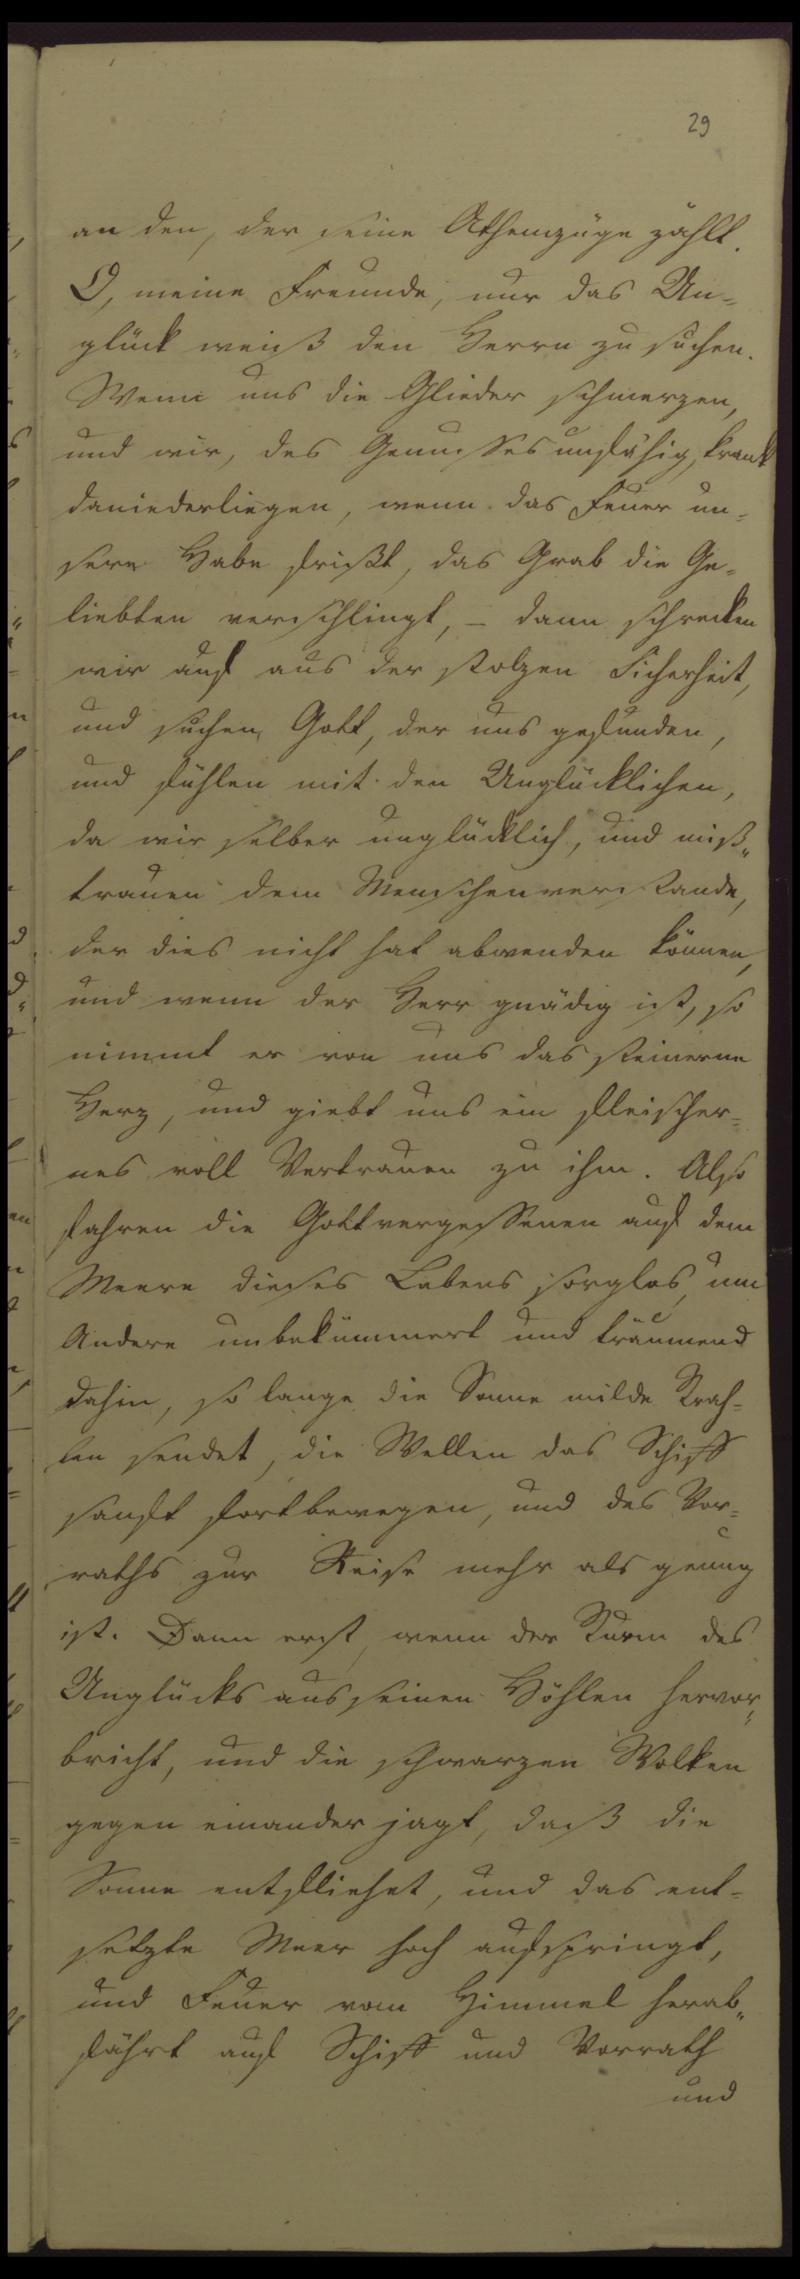 29
an den, der seine Athemzüge zählt.
O, meine Freunde, nur das Un-
glück weiß den Herrn zu suchen.
Wenn uns die Glieder schmerzen,
und wir, des Genusses unfähig, krank
daniederliegen, wenn das Feuer un-
sere Habe frißt, das Grab die Ge-
liebten verschlingt, – dann schrecken
wir auf aus der stolzen Sicherheit,
und suchen Gott, der uns gefunden,
und fühlen mit den Unglücklichen,
da wir selber unglücklich, und miß-
trauen dem Menschenverstande,
der dies nicht hat abwenden können,
und wenn der Herr gnädig ist, so
nimmt er von uns das steinerne
Herz, und giebt uns ein fleischer-
nes voll Vertrauen zu ihm. Also
fahren die Gottvergessenen auf dem
Meere dieses Lebens sorglos, um
Andere unbekümmert und träumend
dahin, so lange die Sonne milde Strah-
len sendet, die Wellen das Schiff
sanft fortbewegen, und des Vor-
raths zur Reise mehr als genug
ist. Dann erst, wenn der Sturm des
Unglücks aus seinen Höhlen hervor-
bricht, und die schwarzen Wolken
gegen einander jagt, daß die
Sonne entfliehet, und das ent-
setzte Meer hoch aufspringt,
und Feuer vom Himmel herab-
fährt auf Schiff und Vorrath
und